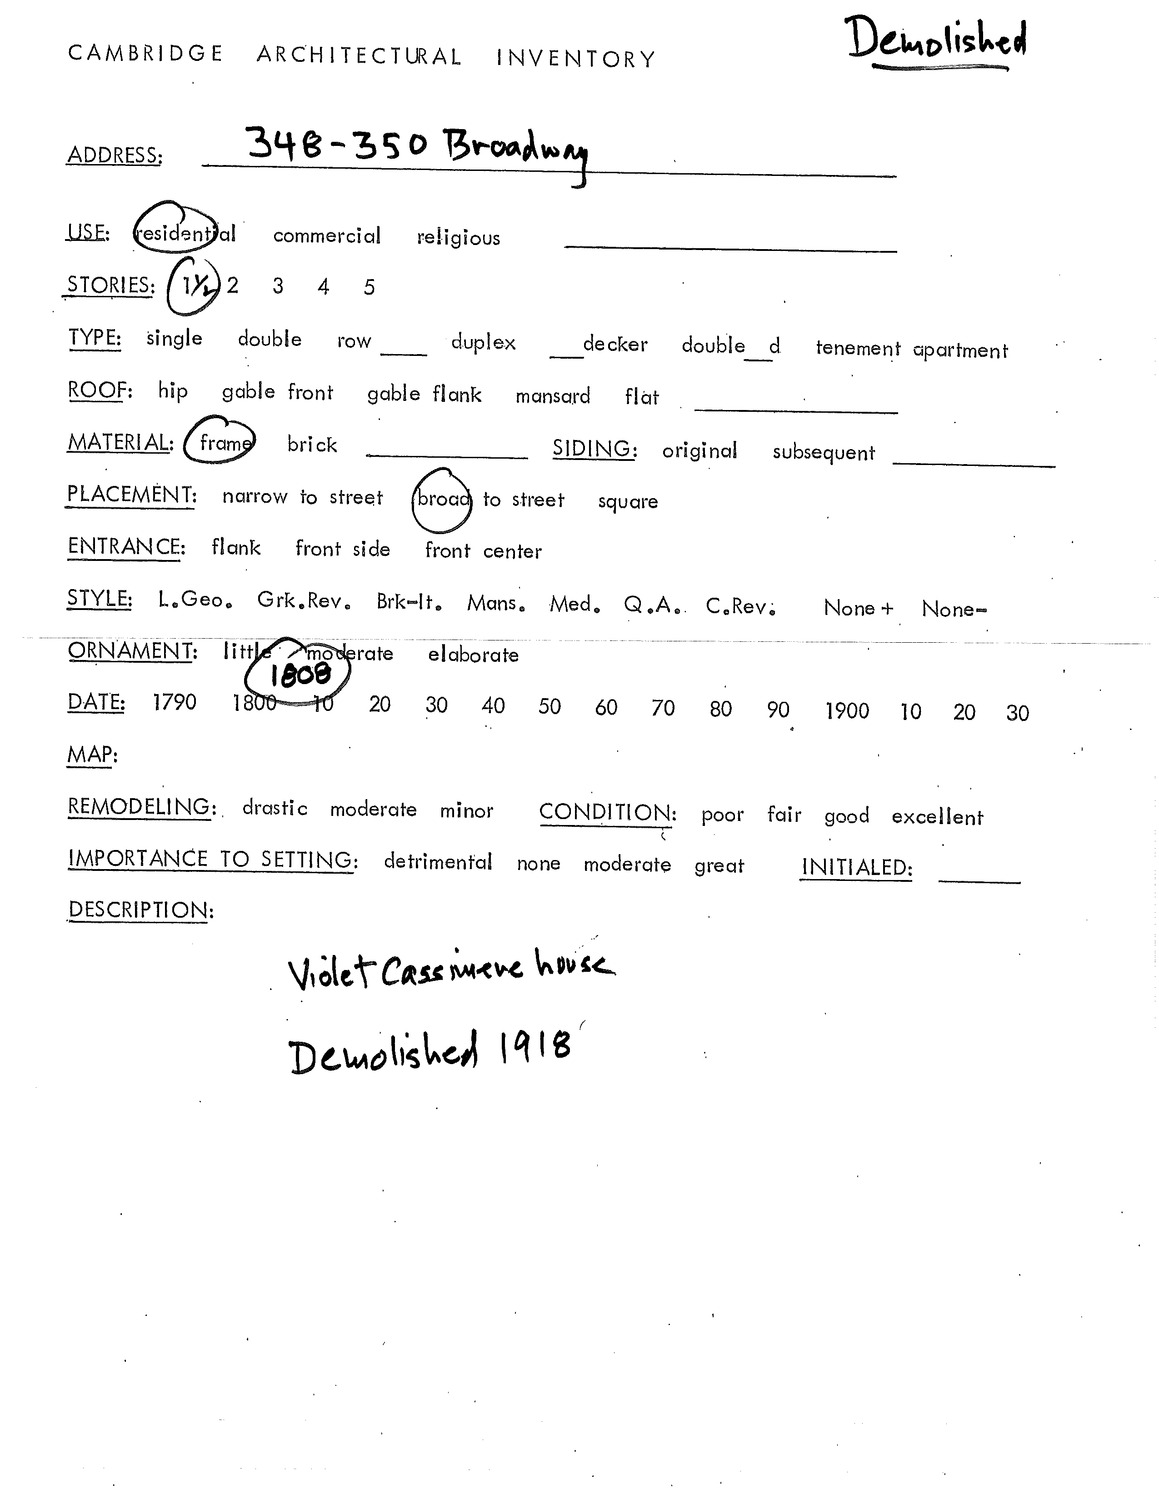 Demolished
CAMBRIDGE ARCHITECTURAL INVENTORY
ADDRESS: 348-350 Broadway
USE: residential commercial religious
STORIES: 1½ 2 3 4 5
TYPE: single double row ___ duplex ___decker double___d tenement apartment
ROOF: hip gable front gable flank mansard flat
MATERIAL: frame brick ___ SIDING: original subsequent ___
PLACEMENT: narrow to street broad to street square
ENTRANCE: flank front side front center
STYLE: L.Geo. Grk.Rev. Brk-It. Mans. Med. Q.A. C.Rev. None+ None-
ORNAMENT: little moderate elaborate
1808
DATE: 1790 1800 10 20 30 40 50 60 70 80 90 1900 10 20 30
MAP:
REMODELING: drastic moderate minor CONDITION: poor fair good excellent
IMPORTANCE TO SETTING: detrimental none moderate great INITIALED: ___
DESCRIPTION:
Violet Cassimere house
Demolished 1918